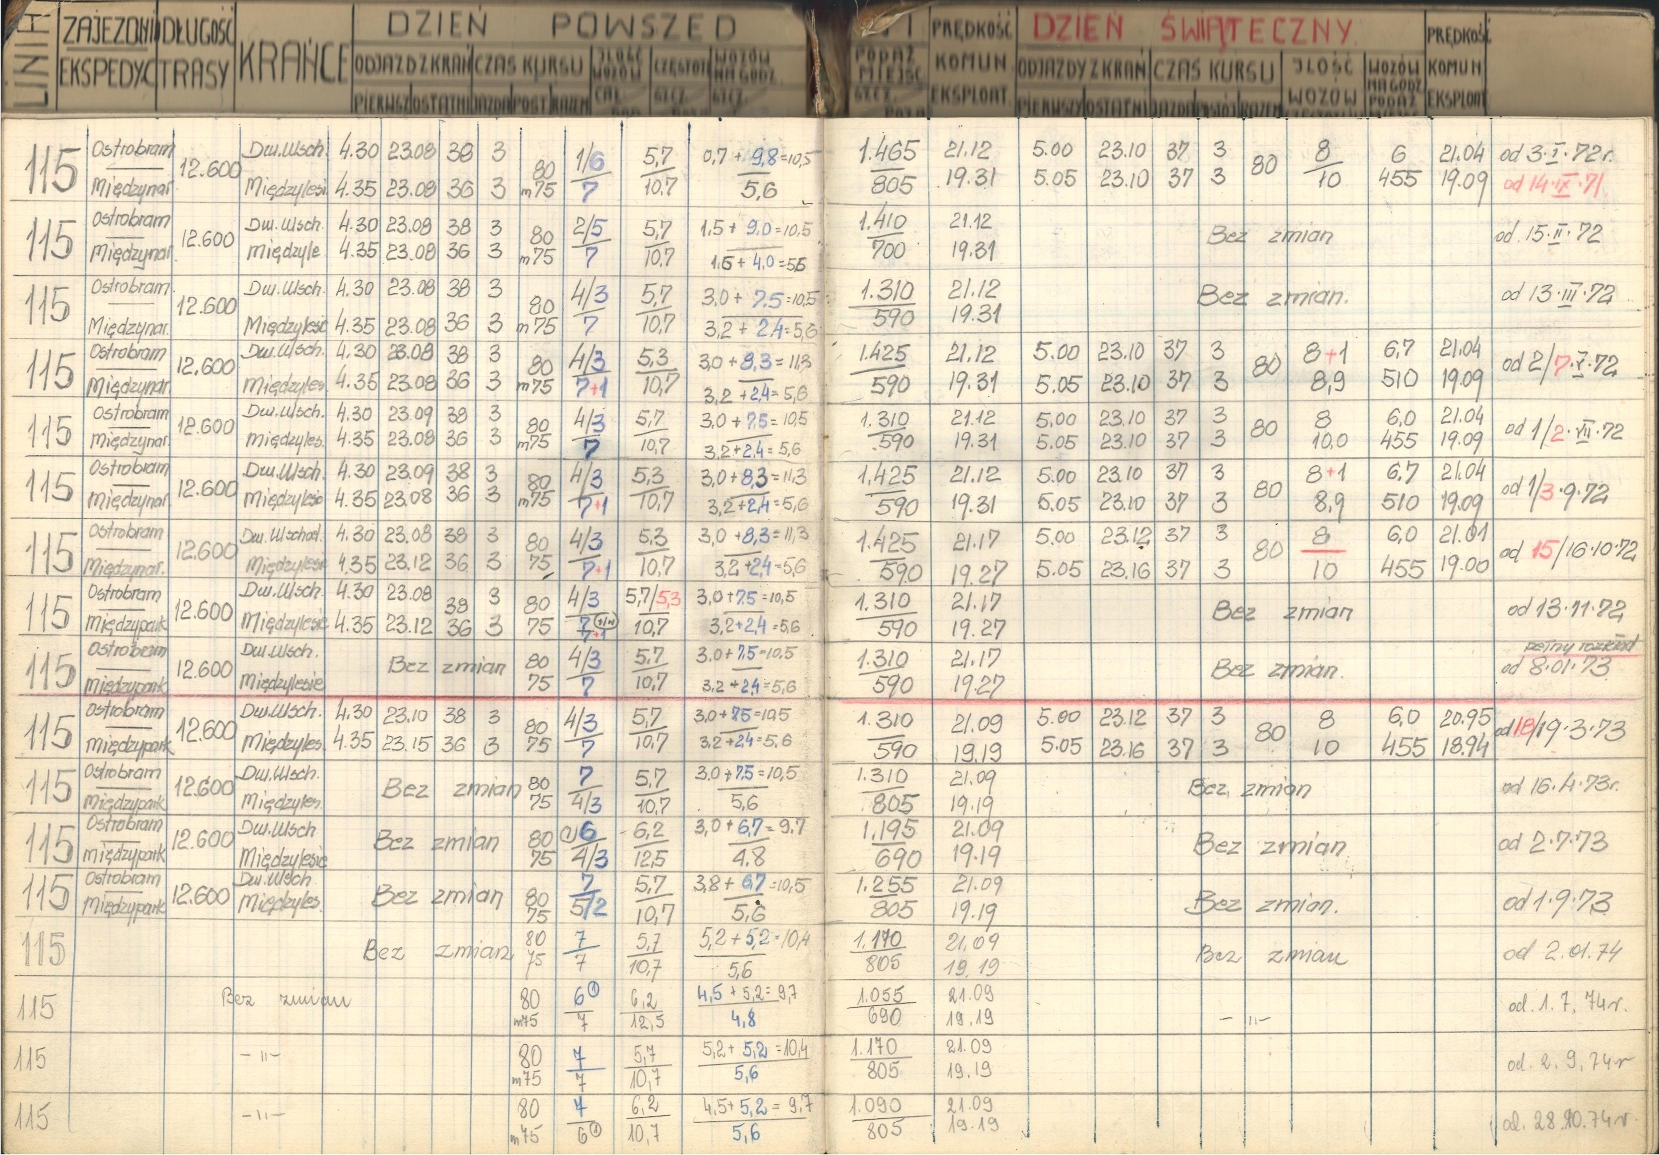 LINIA ZAJEZDNI DŁUGOŚĆ KRAŃCE DZIEŃ POWSZED PRĘDKOŚĆ DZIEŃ ŚWIĄTECZNY PRĘDKOŚĆ
EKSPEDYC TRASY ODJAZDZKRAŃ CZAS KURSU JLOŚĆ WOZÓW CZĘSTOŚ WOZÓW NA GODZ. PODAŻ MIEJSC KOMUN ODJAZDY Z KRAŃ CZAS KURSU JLOŚĆ WOZÓW WOZÓW NA GODZ. PODAŻ KOMUN
PIERWSZ OSTATNI JAZDA POST RAZEM SZCZ. SZCZ. SZCZ. EKSPLOAT. PIERWSZY OSTATNI JAZDA POSTÓJ RAZEM EKSPLOAT.
115 Ostrobram 12.600 Dw.Wsch. 4.30 23.08 38 3 80 1/6 5,7 0,7 + 9,8=10,5 1.465 21.12 5.00 23.10 37 3 80 8 6 21.04 od 3·I·72r.
Międzynar. Międzylesi 4.35 23.08 36 3 m75 7 10,7 5,6 805 19.31 5.05 23.10 37 3 10 455 19.09 od 14·IX·71.
115 Ostrobram 12.600 Dw.Wsch. 4.30 23.08 38 3 80 2/5 5,7 1.5+ 9,0=10,5 1.410 21.12 Bez zmian od 15·II·72
Międzynar. Międzyle 4.35 23.08 36 3 m75 7 10,7 1.5+ 4,0=5,5 700 19.31
115 Ostrobram. 12.600 Dw.Wsch. 4.30 23.08 38 3 80 4/3 5,7 3,0+ 7.5=10,5 1.310 21.12 Bez zmian. od 13·III·72
Międzynar. Międzylesie 4.35 23.08 36 3 m75 7 10,7 3,2 + 2,4=5,6 590 19.31
115 Ostrobram 12.600 Dw.Wsch. 4.30 23.08 38 3 80 4/3 5,3 3,0 + 8,3=11,3 1.425 21.12 5.00 23.10 37 3 80 8+1 6,7 21.04 od 2/7·V·72
Międzynar. Międzyles. 4.35 23.08 36 3 m75 7+1 10,7 3,2 +2,4=5,6 590 19.31 5.05 23.10 37 3 8,9 510 19.09
115 Ostrobram 12.600 Dw.Wsch. 4.30 23.09 38 3 80 4/3 5,7 3,0 + 7,5= 10,5 1.310 21.12 5,00 23.10 37 3 80 8 6,0 21.04 od 1/2·VII·72
Międzynar. Międzyles. 4.35 23.08 36 3 m75 7 10,7 3,2+2,4= 5,6 590 19.31 5.05 23.10 37 3 10,0 455 19.09
115 Ostrobram 12.600 Dw.Wsch. 4.30 23.09 38 3 80 4/3 5,3 3,0+8,3=11,3 1,425 21.12 5.00 23.10 37 3 80 8+1 6,7 21.04 od 1/3·9·72
Międzynar. Międzylesie 4.35 23.08 36 3 m75 7+1 10,7 3,2+2,4=5,6 590 19.31 5.05 23.10 37 3 8,9 510 19.09
115 Ostrobram 12.600 Dw.Wschod. 4.30 23.08 38 3 80 4/3 5,3 3,0 +8,3=11,3 1.425 21.17 5.00 23.12 37 3 80 8 6,0 21.01 od 15/16·10·72
Międzynar. Międzylesie 4.35 23.12 36 3 75 7+1 10,7 3,2+2,4=5,6 590 19.27 5.05 23.16 37 3 10 455 19.00
115 Ostrobram 12.600 Dw.Wsch. 4.30 23.08 38 3 80 4/3 5,7/5,3 3,0+7.5=10,5 1.310 21.17 Bez zmian od 13·11·72
Międzypark Międzylesie 4.35 23.12 36 3 75 7+1 10,7 3,2+2,4=5,6 590 19.27
115 Ostrobram 12.600 Dw.Wsch. Bez zmian 80 4/3 5,7 3.0+7.5=10,5 1.310 21.17 Bez zmian. pełny rozkład
Międzypark Międzylesie 75 7 10,7 3,2 +2,4=5,6 590 19.27 od 8·01·73
115 Ostrobram 12.600 Dw.Wsch. 4.30 23.10 38 3 80 4/3 5,7 3,0+7.5=10,5 1.310 21.09 5.00 23.12 37 3 80 8 6,0 20.95 od 18/19·3·73
Międzypark Międzyles. 4.35 23.15 36 3 75 7 10,7 3,2+2,4=5,6 590 19.19 5.05 23.16 37 3 10 455 18.94
115 Ostrobram 12.600 Dw.Wsch. Bez zmian 80 7 5,7 3,0+7,5=10,5 1.310 21.09 Bez zmian od 16·4·73r.
Międzypark Międzyles 75 4/3 10,7 5,6 805 19.19
115 Ostrobram 12.600 Dw.Wsch Bez zmian 80 (1) 6 6,2 3,0+6,7=9,7 1.195 21.09 Bez zmian od 2·7·73
Międzypark Międzylesie 75 4/3 12,5 4,8 690 19.19
115 Ostrobram 12.600 Dw.Wsch Bez zmian 80 7 5,7 3,8+ 6,7=10,5 1.255 21.09 Bez zmian. od 1·9·73
Międzypark Międzyles. 75 5/2 10,7 5,6 805 19.19
115 Bez zmian 80 7 5,7 5,2+5,2=10,4 1.170 21,09 Bez zmian od 2.01.74
75 7 10,7 5,6 805 19.19
115 Bez zmian 80 6(1) 6,2 4,5+5,2=9,7 1.055 21.09 – II – od. 1. 7. 74r.
m75 7 12,5 4,8 690 19.19
115 – II – 80 7 5,7 5,2+ 5,2=10,4 1.170 21.09 od. 2. 9. 74r
m75 7 10,7 5,6 805 19.19
115 – II – 80 7 6,2 4,5+5,2= 9,7 1.090 21.09 od. 28.10.74r.
m75 6(1) 10,7 5,6 805 19.19